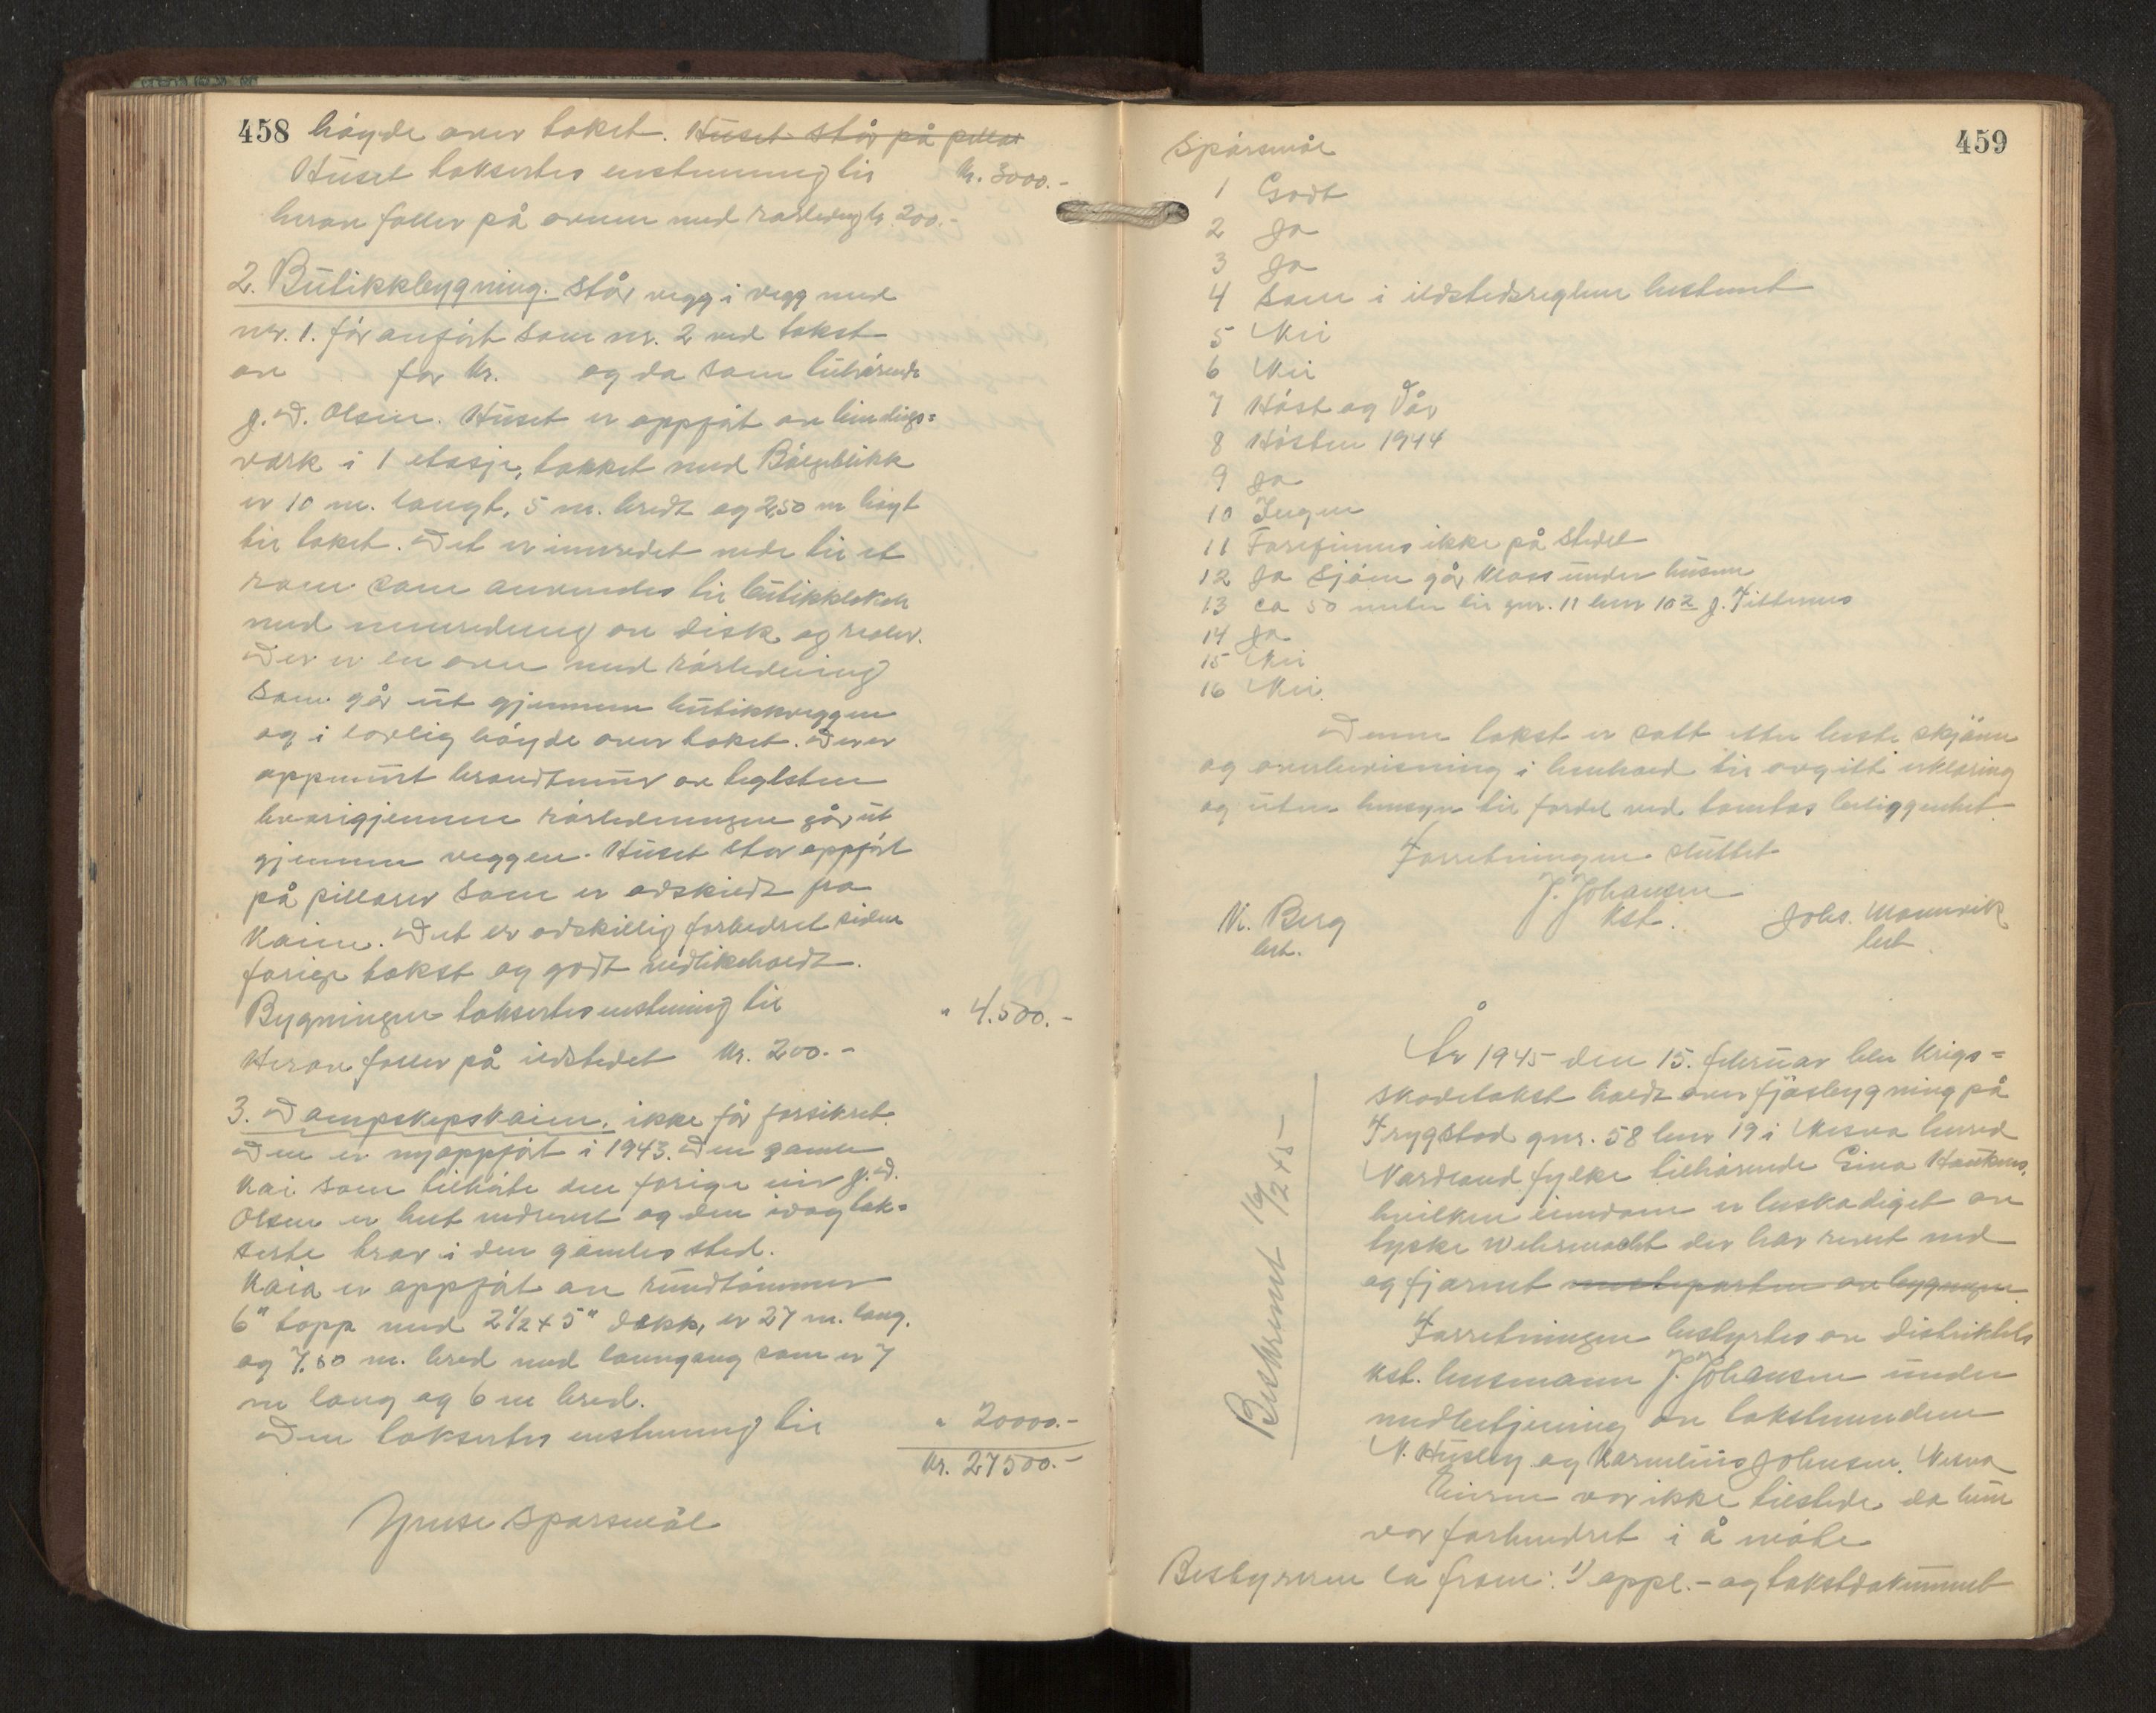 458 höyde over taket. Huset står på pillar
Huset taksertes enstemmig til kr. 3000.-
herav faller på ovnen med rørledning kr. 200.-
2. Butikkbygning. står vegg i vegg med
nr. 1. før anført som nr. 2 ved takst
av for kr. og da som tilhørende
J. D. Olsen. Huset er oppført av bindings=
verk i 1 etasje, takket med Bølgeblikk
er 10 m. langt, 5 m. bredt og 2,50 m høyt
til taket. Det er innredet nede til et
rom som anvendes til butikklokale
med innredning av disk og reoler.
Der er en ovn med rørledning
som går ut gjennem butikkveggen
og i lovlig høyde over taket. Der er
oppmurt brandtmur av teglsten
hvorigjennem rørledningen går ut
gjennem veggen. Huset står oppført
på pillarer som er adskildt fra
Kaien. Det er adskillig forbedret siden
forige takst og godt vedlikeholdt.
Bygningen taksertes enstemmig til " 4.500.-
Herav faller på ildstedet kr. 200.-
3. Dampskipskaien, ikke før forsikret.
Den er nyoppført i 1943. Den gamle
kai som tilhørte den forige eier J. D.
Olsen er helt nedrevet og den idag tak=
serte trær i den gamles sted.
Kaia er oppført av rundtømmer
6" topp med 2 1/2 x 5" dekk, er 27 m. lang,
og 7.50 m. bred med landgang som er 7
m lang og 6 m bred.
Den taksertes enstemmig til " 20000.-
kr. 27500.-
Gjense spørsmål
459
Spörsmål
1 Godt
2 Ja
3 Ja
4 Som i ildstedsreglene bestemt
5 Nei
6 Nei
7 Höst og Vår
8 Hösten 1944
9 Ja
10 Ingen
11 Forefinnes ikke på stedet
12 Ja Sjöen går kloss under husene
13 ca 50 meter til gnr. 11 bnr 102 J.
14 Ja
15 Nei
16 Nei.
Denne takst er satt etter beste skjönn
og overbevisning i henhold til avgitt erklæring
og uten hensyn til fordel ved tomtas beliggenhet.
Forretningen sluttet
J. Johansen
kst.
N. Berg
lest.
Johs.
lest.
År 1945 den 15. februar blev Krigs=
skadetakst holdt over fjösbygning på
Trygstad gnr. 58 bnr 19 i Nesna herred
Nordland fylke tilhörende Gina
hvilken eiendom er beskadiget av
tyske Wehrmacht der har revet ned
og fjernet mesteparten av bygningen.
Forretningen bestyrtes av distriktets
kst. lensmann J. Johansen under
medbetjening av takstmendene
N. Husby og Kornelius Johnsen, Nesna
Eieren var ikke tilstede da hun
var forhindret i å möte
Bestyreren la fram: 1) oppl.- og takstdokument
Beskrevet 16/2 45